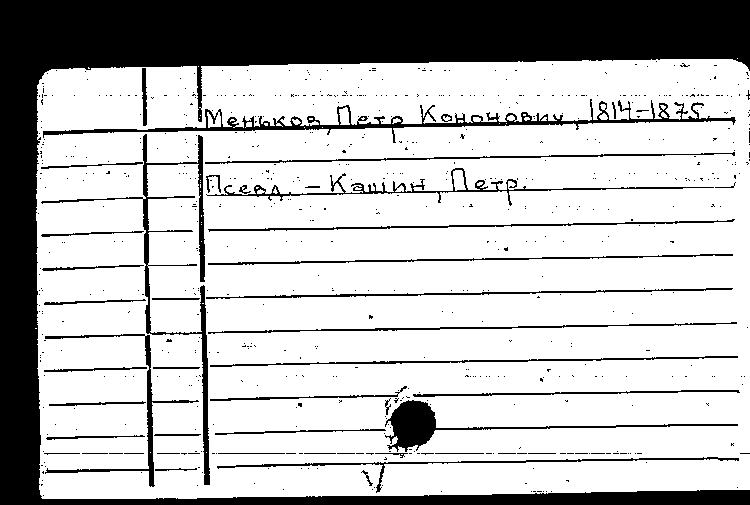 Меньков, Петр Кононович, 1814-1875.
Псевд. - Кашин, Петр.